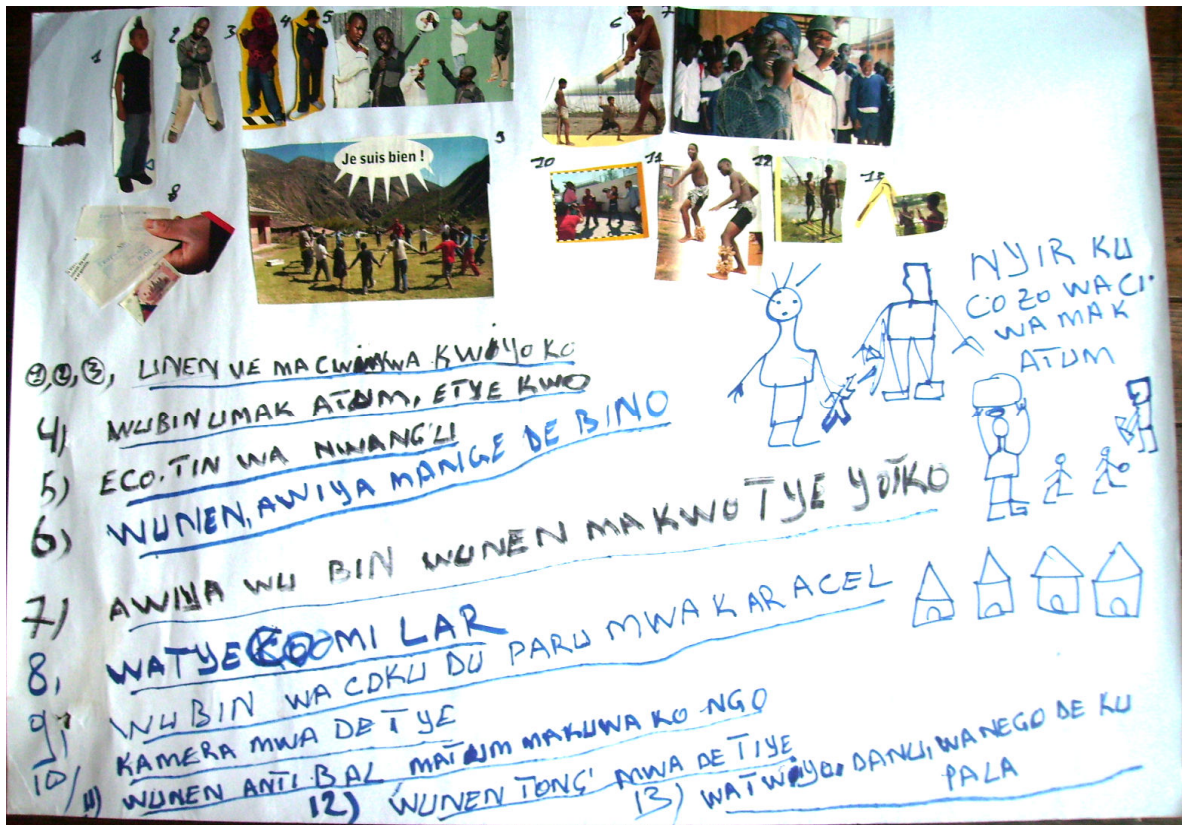 1 2 3 4 5 6 7
Je suis bien !
9
8
10 11 12 13
NYIR KU
COZO WACI.
WA MAK
ATUM
①,②,③, UNEN VE MACWINYWA KWIYO KO
4) WUBIN UMAK ATUM, ETYE KWO
5) ECO. TIN WA NWANG'LI
6) WUNEN, AWIYA MANGE DE BINO
7) AWIYA WU BIN WUNEN MAKWO TYE YOIKO
8, WATYE KO OMI LAR
9, WUBIN WA COKU DU PARU MWA KAR ACEL
10/ KAMERA MWA DE TYE
11) WUNEN ANTI BAL MATUM MAKUWA KO NGO
12) WUNEN TONG' MWA DE TIYE
13) WATWIYO, DANU, WANEGO DE KU
PALA